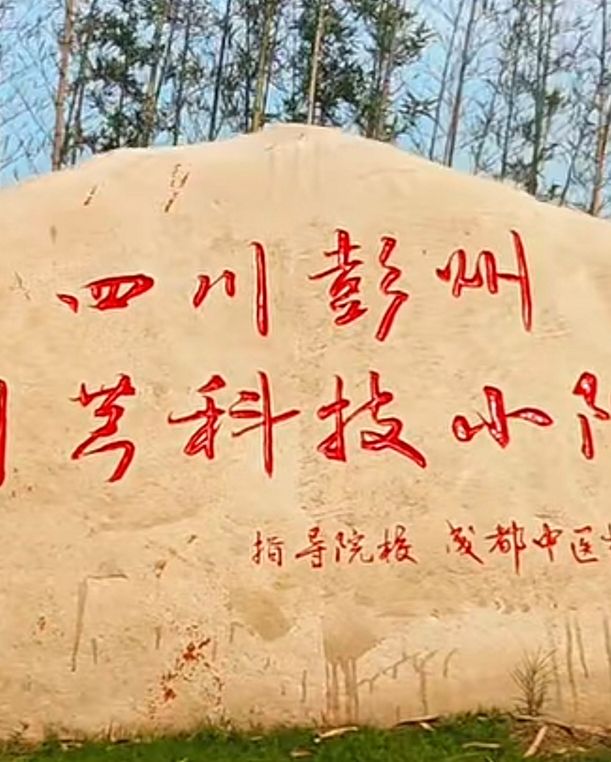 四川彭州
芎科技小
指导院校 成都中医